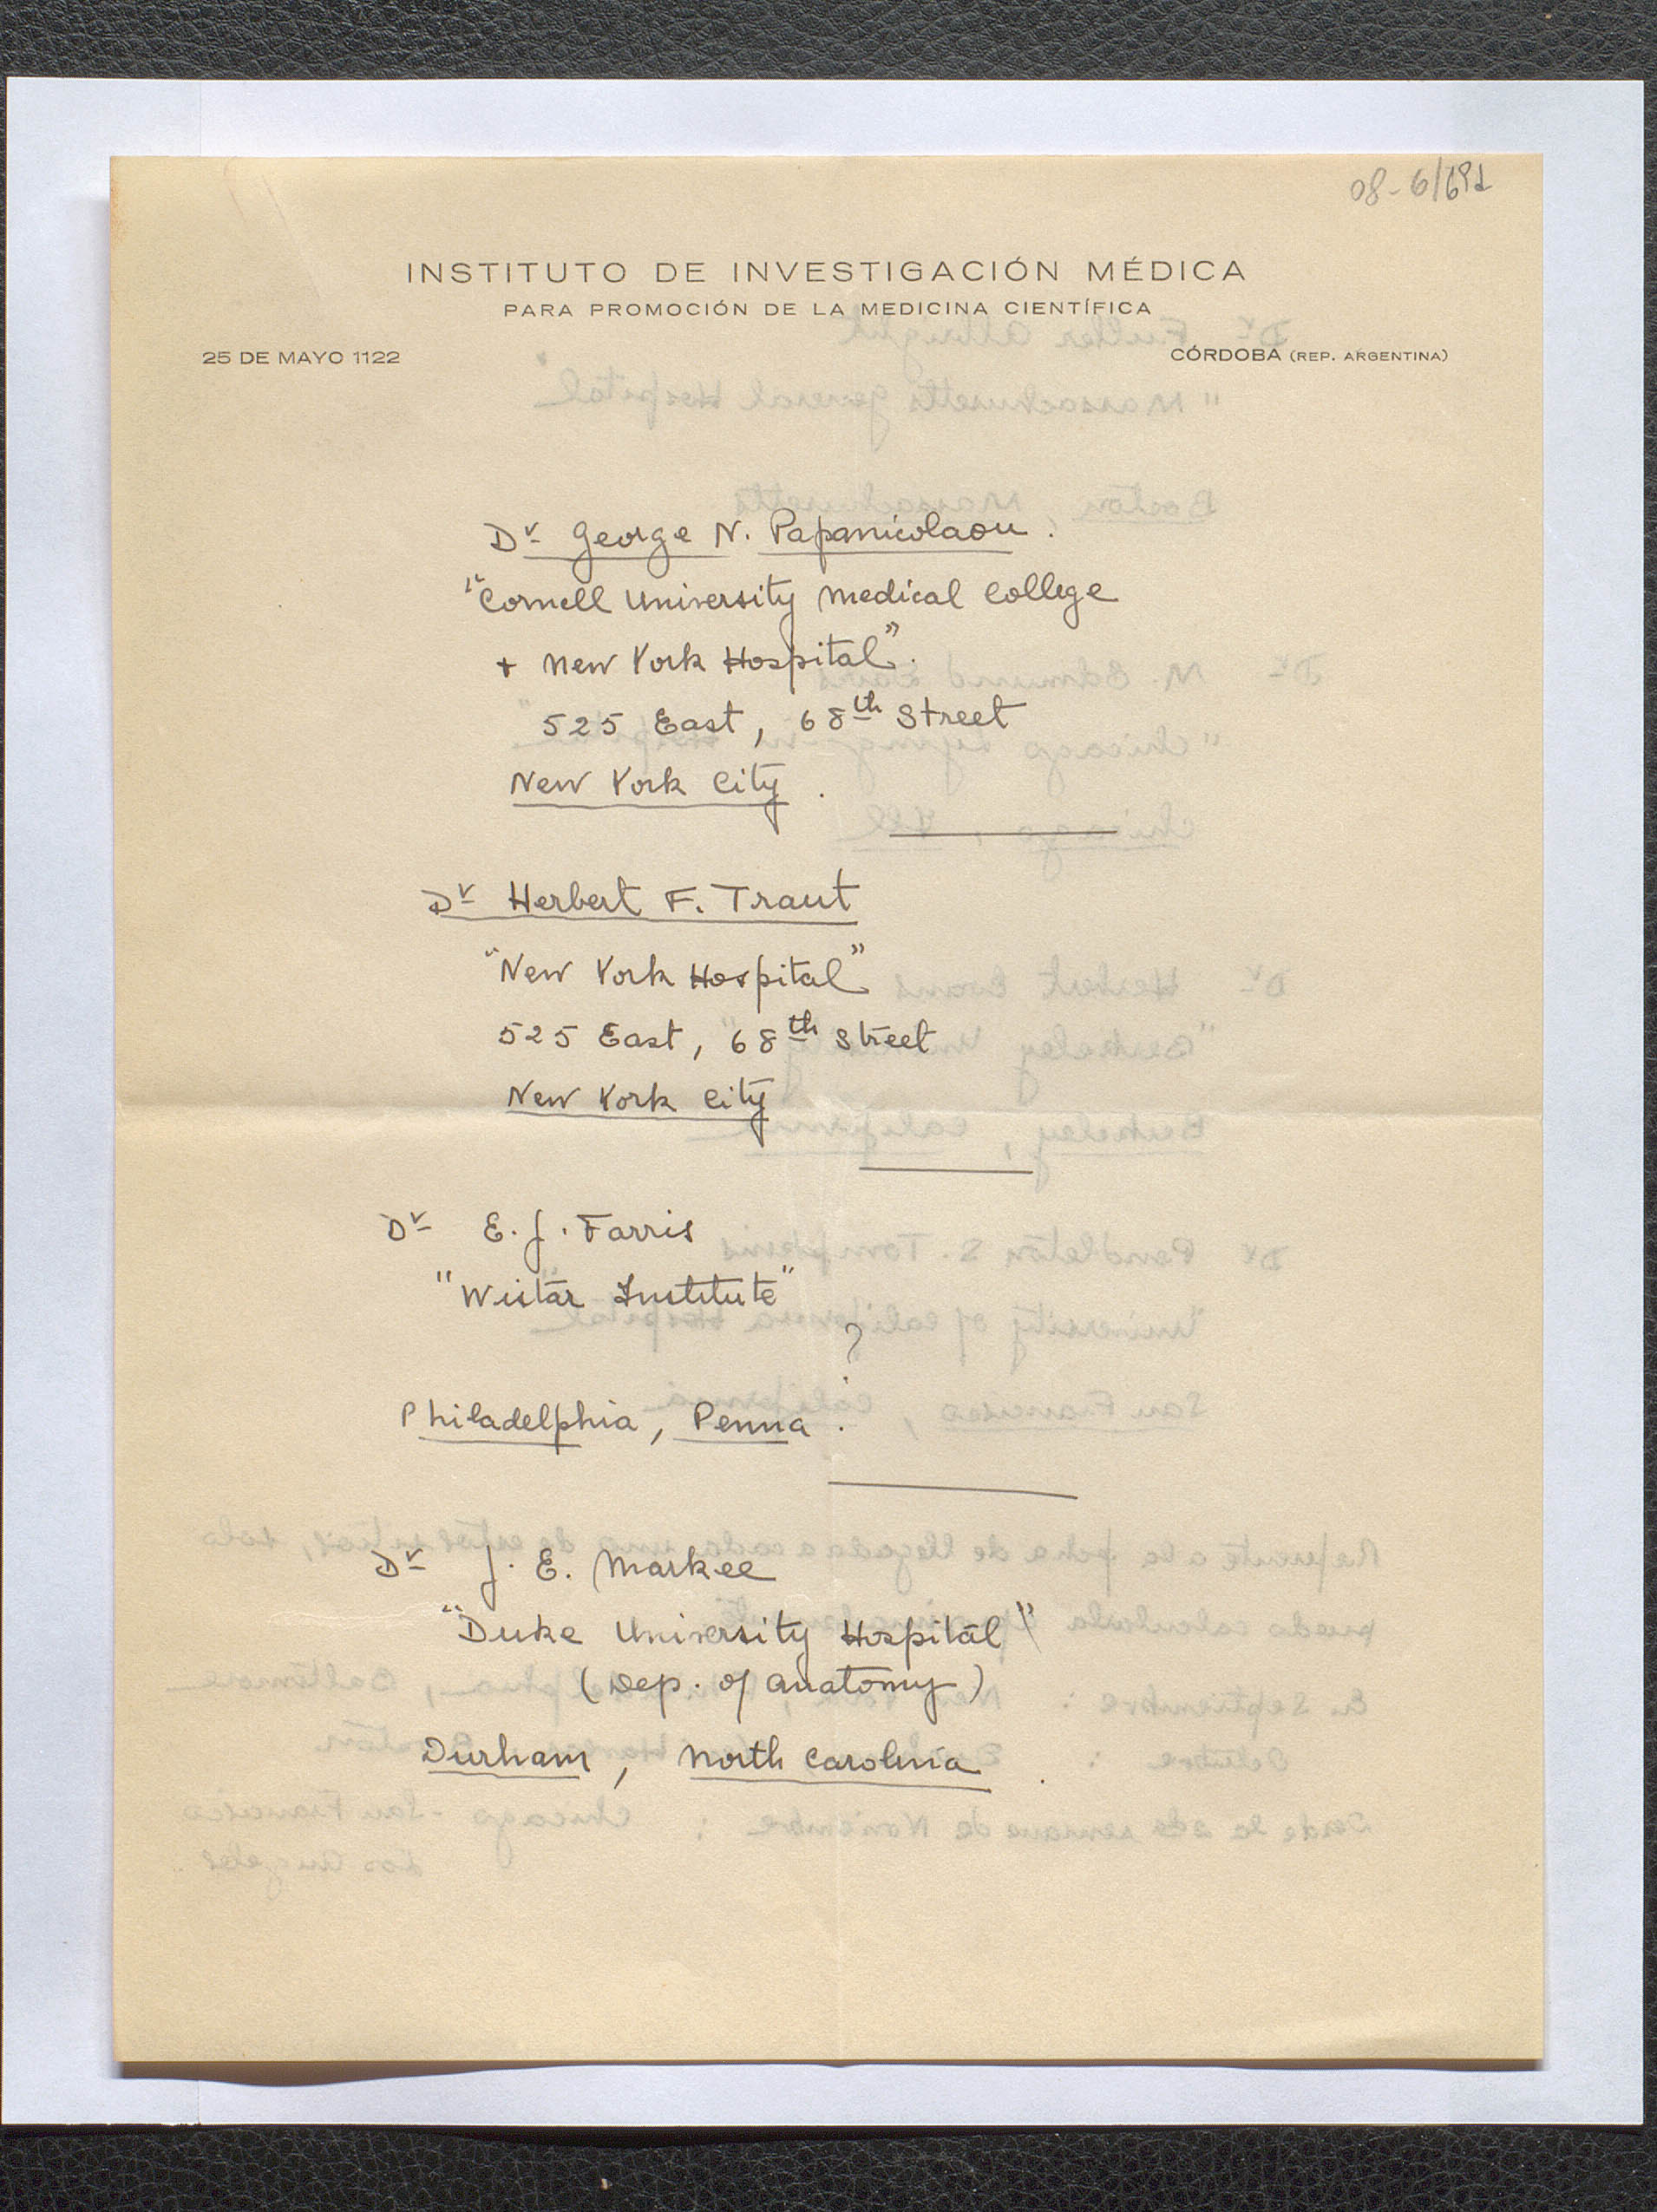 08-6/691
INSTITUTO DE INVESTIGACIÓN MÉDICA
PARA PROMOCIÓN DE LA MEDICINA CIENTÍFICA
25 DE MAYO 1122 CÓRDOBA (REP. ARGENTINA)
Dr George N. Papanicolaou.
"Cornell University Medical College
+ New York Hospital".
525 East, 68th Street
New York City.
Dr Herbert F. Traut
"New York Hospital"
525 East, 68th Street
New York City
Dr E. J. Farris
"Wistar Institute"
?
Philadelphia, Penna.
Dr J. E. Markee
"Duke University Hospital"
(Dep. of Anatomy)
Durham, North Carolina.